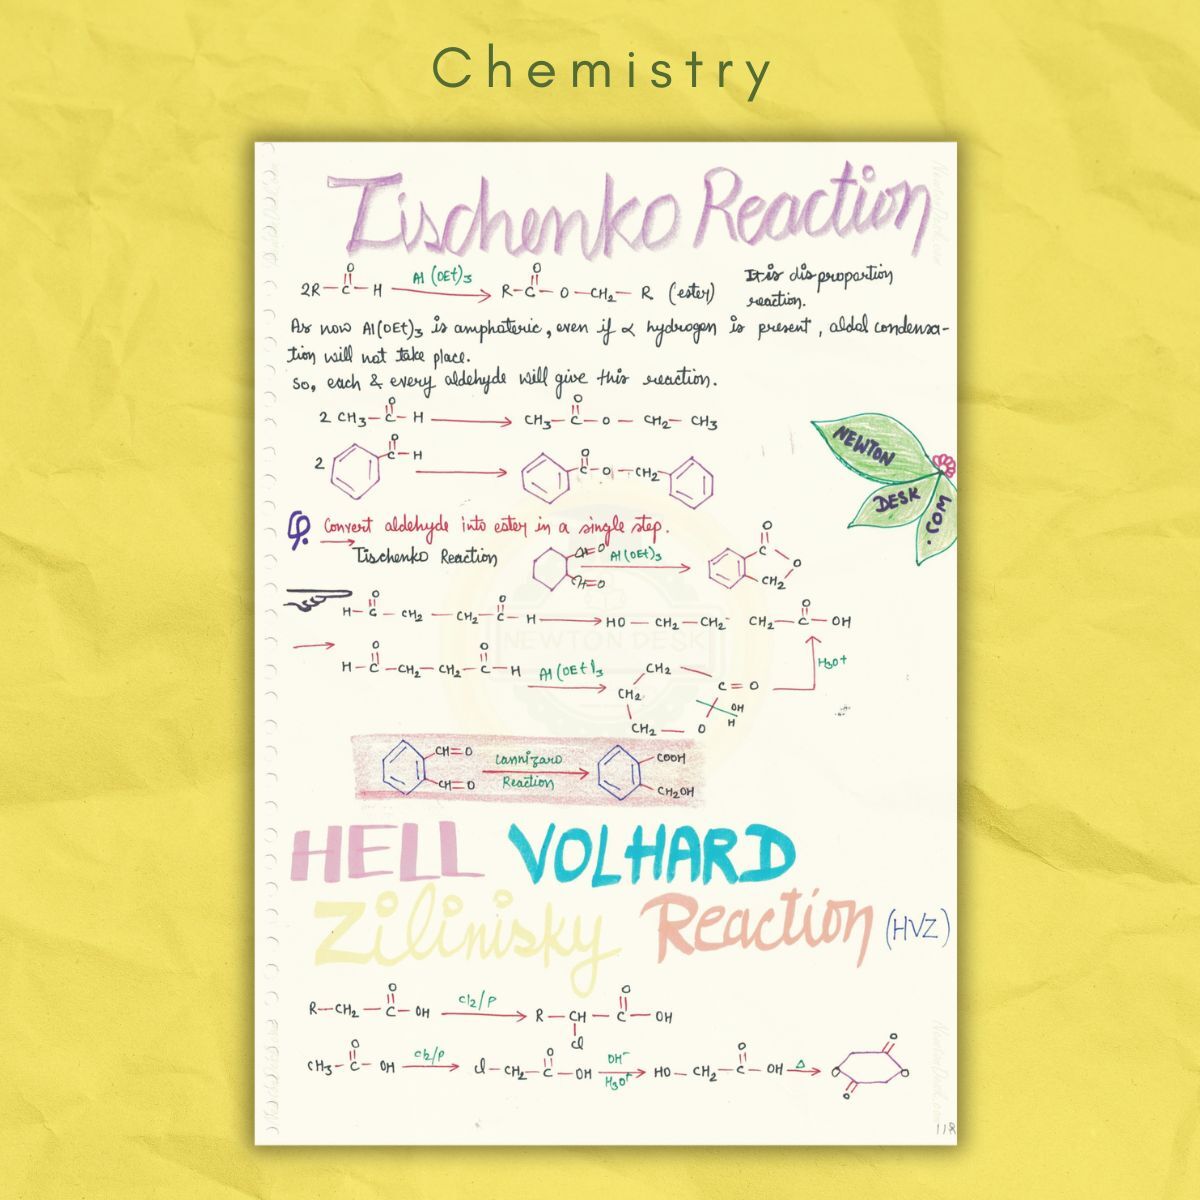 Chemistry
Tischenko Reaction
2R-C(=O)-H Al(OEt)3 R-C(=O)-O-CH2-R (ester) It is dispropartion
reaction.
As now Al(OEt)3 is amphoteric, even if α hydrogen is present, aldol condensa-
tion will not take place.
So, each & every aldehyde will give this reaction.
2 CH3-C(=O)-H CH3-C(=O)-O-CH2-CH3
2 C(=O)-H C(=O)-O-CH2
NEWTON
DESK
.COM
Q. Convert aldehyde into ester in a single step.
Tischenko Reaction CH=O CH=O Al(OEt)3 C=O O CH2
H-C(=O)-CH2-CH2-C(=O)-H HO-CH2-CH2- CH2-C(=O)-OH
H-C(=O)-CH2-CH2-C(=O)-H Al(OEt)3 CH2 CH2 CH2 C=O O OH H H3O+
CH=O CH=O Cannizaro Reaction COOH CH2OH
NEWTON DESK
HELL VOLHARD
Zilinisky Reaction (HVZ)
R-CH2-C(=O)-OH Cl2/P R-CH-C(=O)-OH
Cl
CH3-C(=O)-OH Cl2/P Cl-CH2-C(=O)-OH OH- H3O+ HO-CH2-C(=O)-OH Δ O O O O
NewtonDesk.com
118